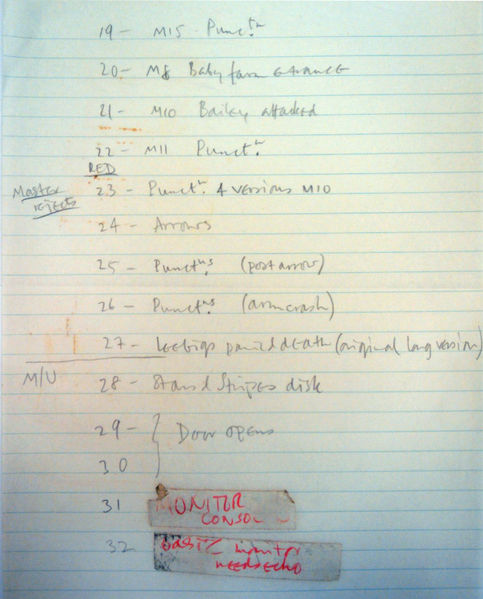 19 - M15 Punct.n
20 - M8 Baby farm entrance
21 - M10 Bailey attacked
22 - M11 Punct.n
RED
23 - Punct.n 4 versions M10
Master rejects
24 - Arrows
25 - Punct.ns (post arrow)
26 - Punct.ns (armcrash)
27 - death (original long version)
M/U
28 - Stars & Stripes disk
29 - Door opens
30
31 MONITOR
CONSOL
32 basic monitor
needs echo